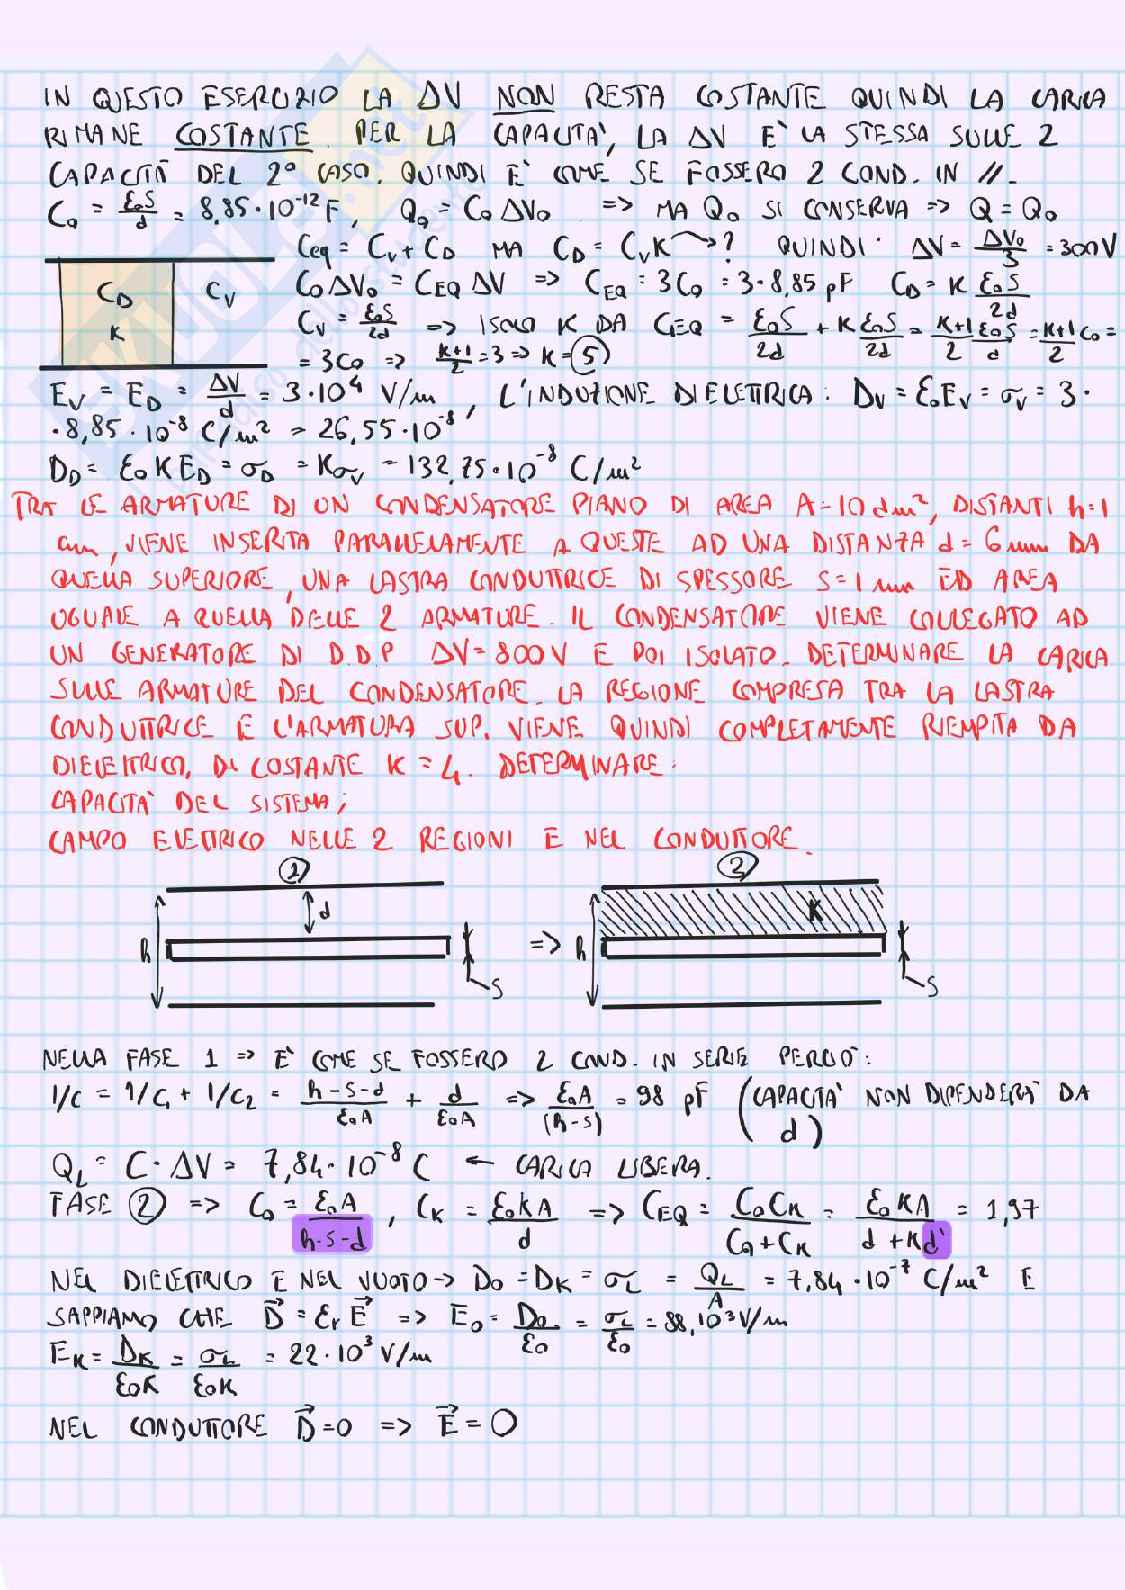 IN QUESTO ESERCIZIO LA ΔV NON RESTA COSTANTE QUINDI LA CARICA
RIMANE COSTANTE. PER LA CAPACITA', LA ΔV E' LA STESSA SULLE 2
CAPACITÀ DEL 2° CASO. QUINDI E' COME SE FOSSERO 2 COND. IN //.
C₀ = ε₀S/d = 8,85·10⁻¹² F, Q₀ = C₀ΔV₀ => MA Q₀ SI CONSERVA => Q = Q₀
Ceq = Cv + CD MA CD = CvK → ? QUINDI: ΔV = ΔV₀/3 = 300V
C₀ΔV₀ = CEQ ΔV => CEQ = 3C₀ = 3·8,85 pF CD = K ε₀S/2d
CD K CV
Cv = ε₀S/2d => ISOLO K DA CEQ = ε₀S/2d + K ε₀S/2d = K+1/2 ε₀S/d = K+1/2 C₀ =
= 3C₀ => K+1/2 = 3 => K = 5
Ev = ED = ΔV/d = 3·10⁴ V/m, L'INDUZIONE DIELETTRICA: Dv = ε₀Ev = σv = 3·
·8,85·10⁻⁸ C/m² = 26,55·10⁻⁸
DD = ε₀KED = σD = Kσv = 132,75·10⁻⁸ C/m²
TRA LE ARMATURE DI UN CONDENSATORE PIANO DI AREA A = 10 dm², DISTANTI h = 1
cm, VIENE INSERITA PARALLELAMENTE A QUESTE AD UNA DISTANZA d = 6 mm DA
QUELLA SUPERIORE, UNA LASTRA CONDUTTRICE DI SPESSORE S = 1 mm ED AREA
UGUALE A QUELLA DELLE 2 ARMATURE. IL CONDENSATORE VIENE COLLEGATO AD
UN GENERATORE DI D.D.P ΔV = 800V E POI ISOLATO. DETERMINARE LA CARICA
SULLE ARMATURE DEL CONDENSATORE. LA REGIONE COMPRESA TRA LA LASTRA
CONDUTTRICE E L'ARMATURA SUP. VIENE QUINDI COMPLETAMENTE RIEMPITA DA
DIELETTRICO, DI COSTANTE K = 4. DETERMINARE:
CAPACITA' DEL SISTEMA;
CAMPO ELETTRICO NELLE 2 REGIONI E NEL CONDUTTORE.
1 2
h d S => h K S
NELLA FASE 1 => E' COME SE FOSSERO 2 COND. IN SERIE PERCIO':
1/C = 1/C₁ + 1/C₂ = h-S-d/ε₀A + d/ε₀A => ε₀A/(h-S) = 98 pF (CAPACITA' NON DIPENDERÀ DA
d)
QL = C·ΔV = 7,84·10⁻⁸ C ← CARICA LIBERA.
FASE 2 => C₀ = ε₀A/h-S-d, CK = ε₀KA/d => CEQ = C₀CK/C₀+CK = ε₀KA/d+Kd' = 1,97
NEL DIELETTRICO E NEL VUOTO → D₀ = DK = σL = QL/A = 7,84·10⁻⁷ C/m² E
SAPPIAMO CHE D⃗ = εrE⃗ => E₀ = D₀/ε₀ = σL/ε₀ = 88·10³ V/m
EK = DK/ε₀K = σL/ε₀K = 22·10³ V/m
NEL CONDUTTORE D⃗ = 0 => E⃗ = 0